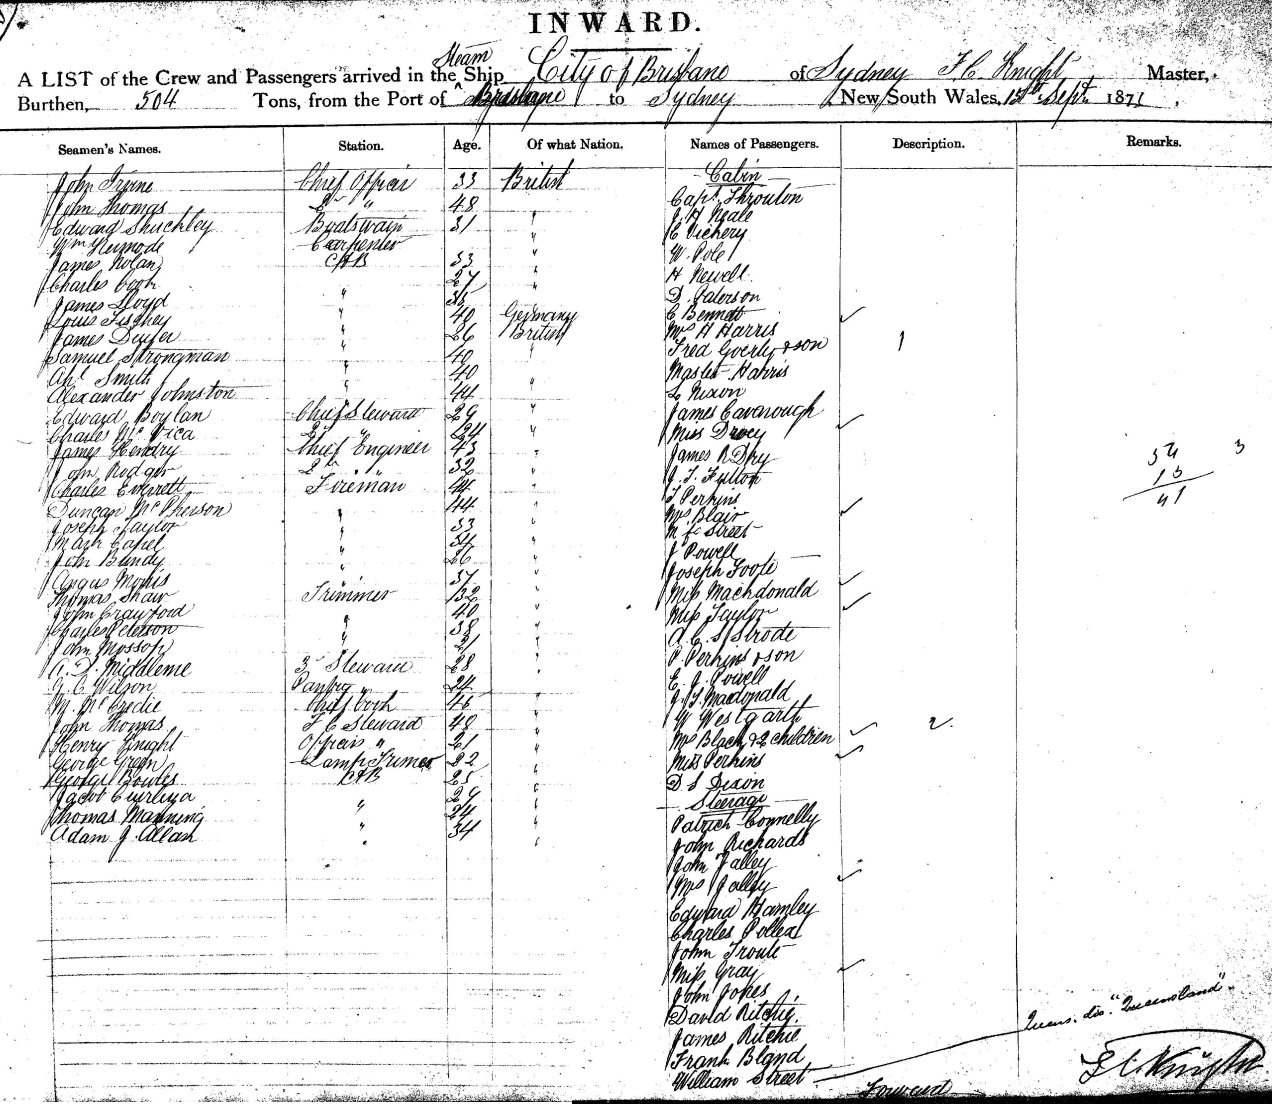 INWARD.
A LIST of the Crew and Passengers arrived in the Steam Ship City of Brisbane of Sydney F C Knight Master,
Burthen, 504 Tons, from the Port of Brisbane to Sydney New South Wales, 15th Septr 1871
Seamen's Names. Station. Age. Of what Nation. Names of Passengers. Description. Remarks.
John Irvine Chief Officer 33 British
John Thomas 2d " 48
Edward Shuchley Boatswain 31 "
Wm Kermode Carpenter "
James Nolan AB 33 "
Charles Cook " 27 "
James Lloyd " 35 "
Louis " 40 Germany
James Dwyer " 26 British
Samuel Strongman " 40 "
Smith " 40
Alexander Johnston " 44 "
Edward Boylan Chief Steward 29 "
Charles 2d " 24 "
James Hendry Chief Engineer 43 "
John Rodger 2d " 32 "
Charles Everrett Fireman 44 "
Duncan McPherson " 44 "
Joseph Taylor " 33 "
Mark Capel " 34 "
John Bundy " 26 "
Angus Morris " 37 "
Thomas Shaw Trimmer 32 "
John Crawford " 40 "
Charles Peterson " 38 "
John Mossop " 21 "
A. D. Middleme 3 Steward 28 "
C Wilson Pantry " 24 "
M. McCredie Chief Cook 46 "
John Thomas F C Steward 40 "
Henry Knight Officers " 21 "
George Green Lamp Trimmer 22 "
George Bowles AB 25 "
Jacob " 29 "
Thomas Manning " 24 "
Adam J. Allan " 34 "
Cabin
Capt. Throuton
J H Neale
E Vickery
W. Pole
H Newell
D. Paterson
C Bennett
Mrs H Harris
Fred & son 1
Master Harris
L Nixon
James Cavanough
Miss
James R Dry
J. T. Fulton
T Perkins
Mrs Blair
Street
J Powell
Joseph Foote
Miss Machdonald
Miss Taylor
A. C. S Strode
P. Perkins & son
E. J. Powell
J. T. Macdonald
W Westgarth
Mrs Black & 2 children 2.
Miss Perkins
D S Dixon
Steerage
Patrick Connelly
John Richards
John Talley
Mrs Talley
Edward Hamley
Charles Pollex
John Troute
Miss Gray
John Jokes
David Ritchie
James Ritchie
Frank Bland
William Street
Forward
34 3
13
41
"Queensland"
F C Knight